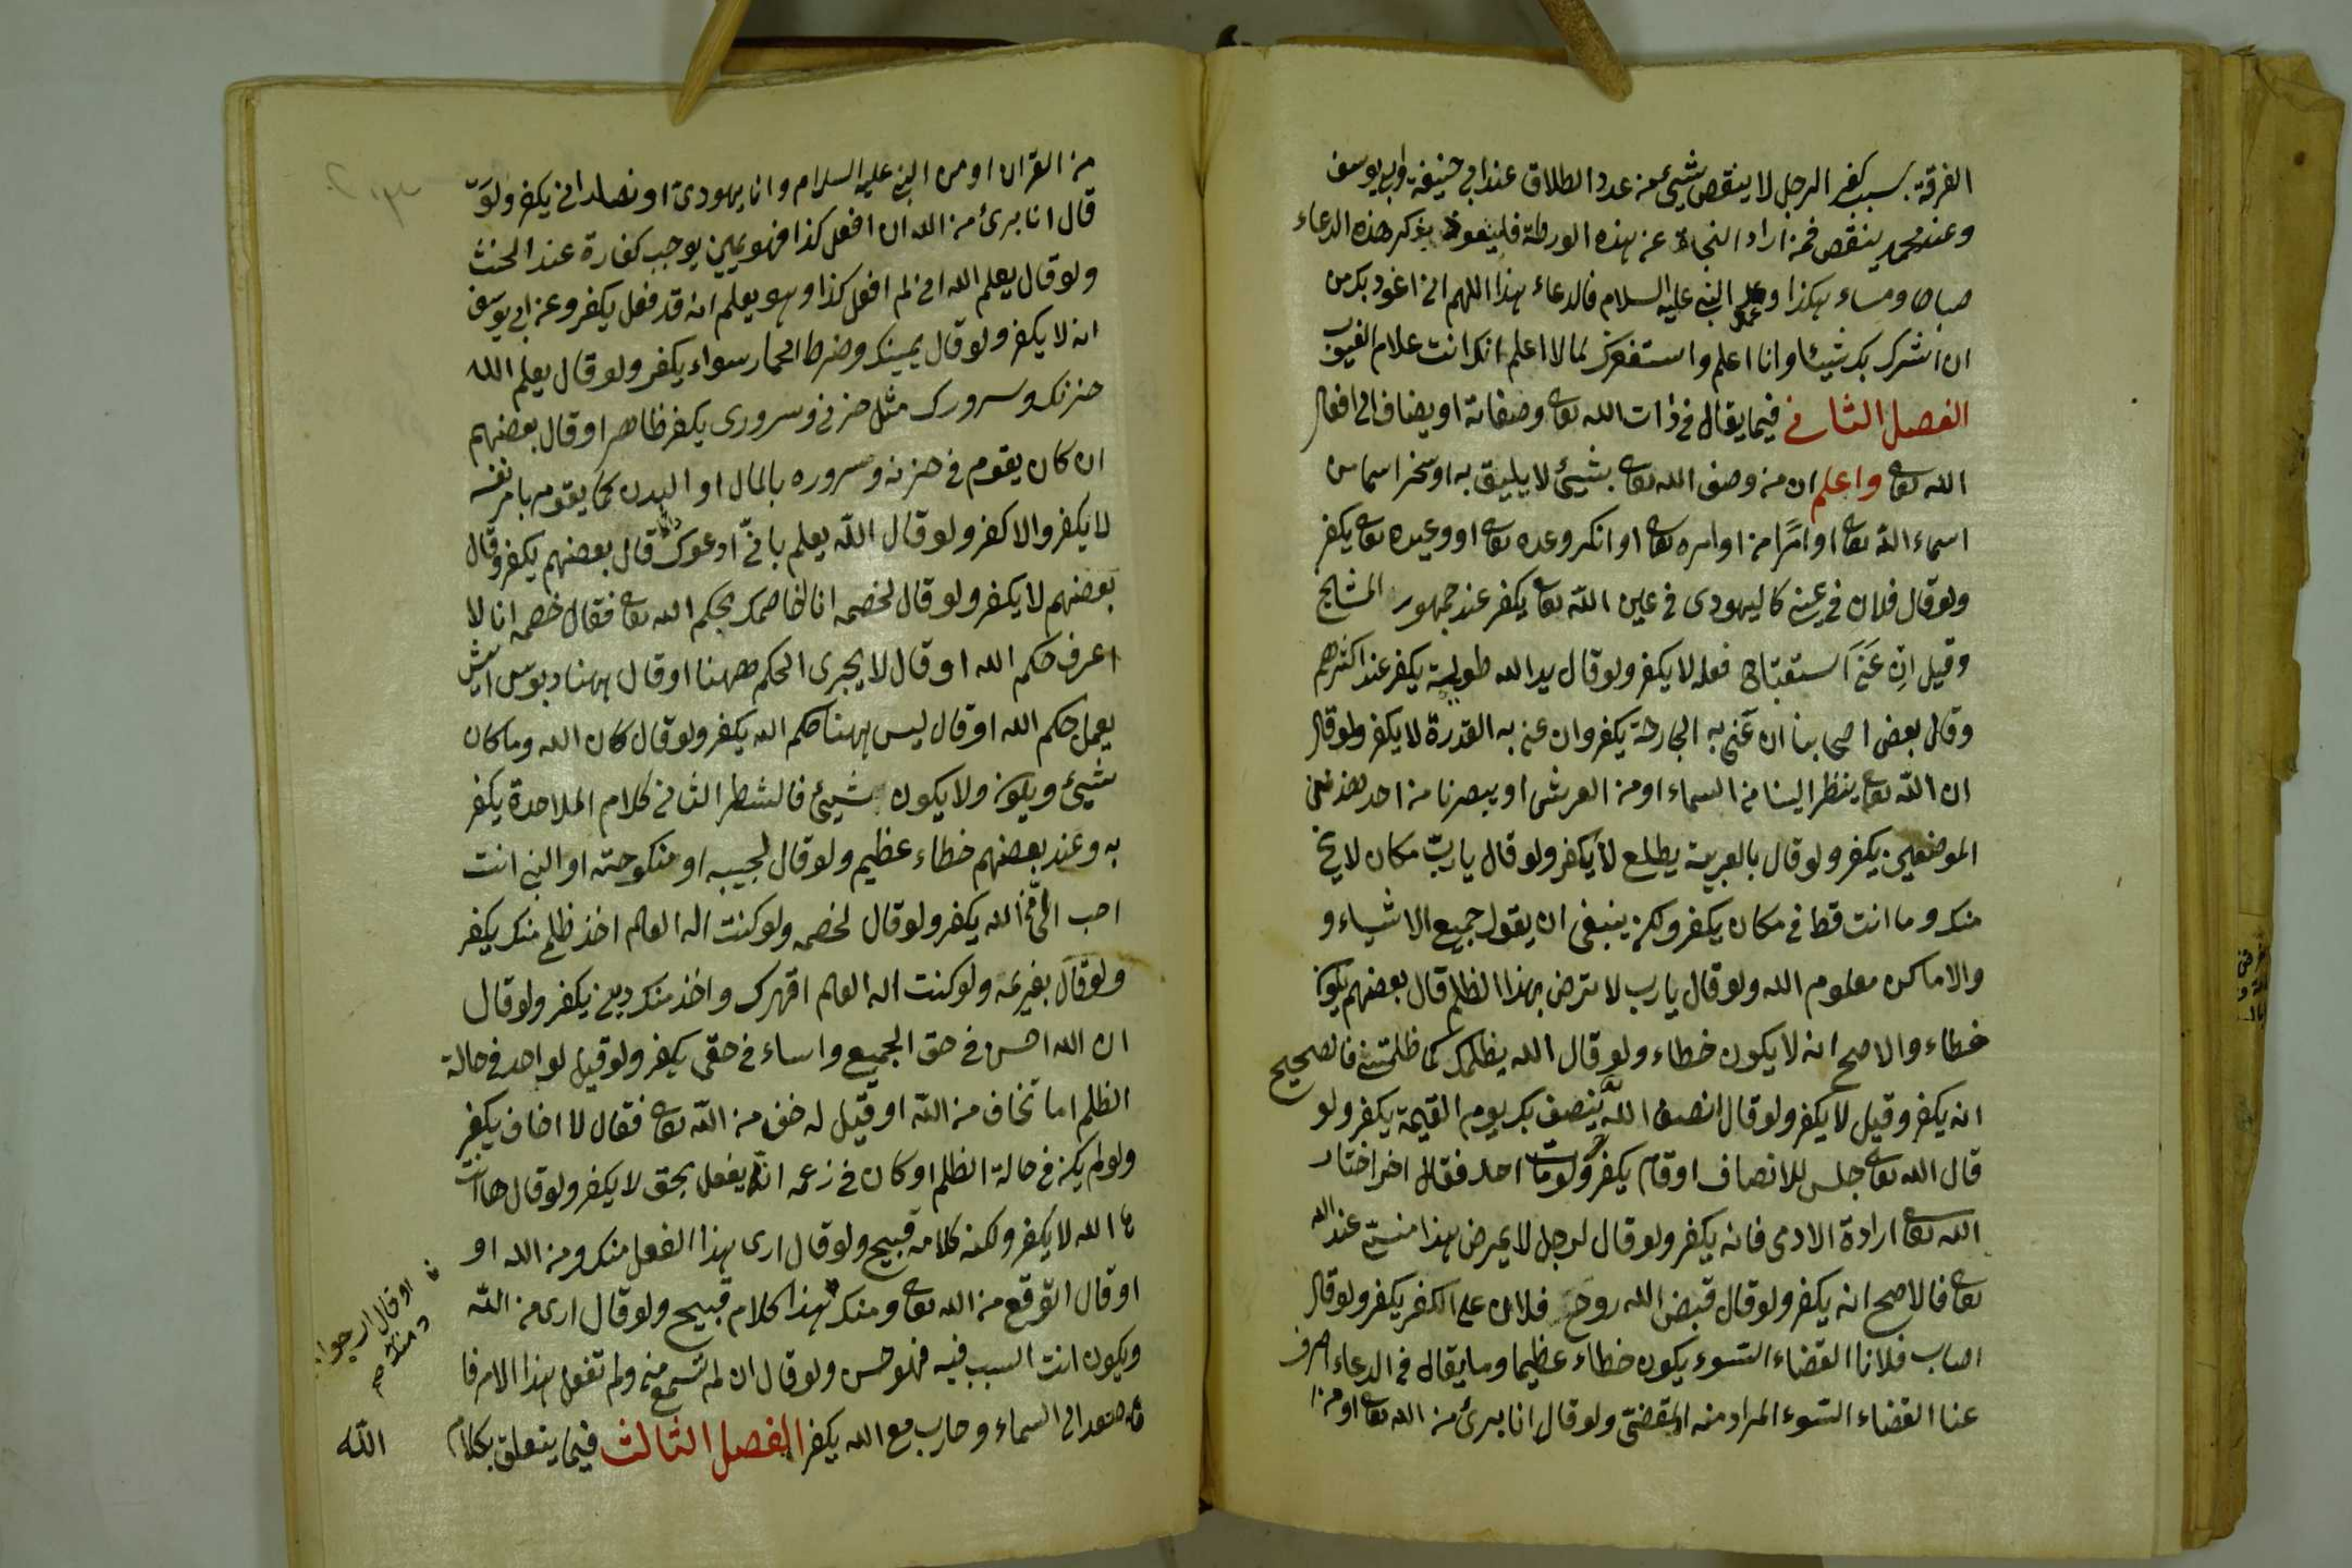 الفرقة بسبب كفر الرجل لا ينقص شيئ من عدد الطلاق عند ابي حنيفة وابي يوسف
وعند محمد ينقص فمن اراد النجاة عن هذه الورطة فليتعوذ بذكر هذه الدعاء
صباحا ومساء هكذا وعد النبي عليه السلام فالدعاء هذا اللهم اني اعوذ بك من
ان اشرك بك شيئا وانا اعلم واستغفرك لما لا اعلم انك انت علام الغيوب
الفصل الثاني فيما يقال في ذات الله تعالى وصفاته او يضاف الى افعال
الله تعالى واعلم ان من وصف الله تعالى بشيئ لا يليق به او سخر اسما من
اسماء الله تعالى او امرًا من اوامره تعالى او انكر وعده تعالى او وعيده تعالى يكفر
ولو قال فلان في عيني كاليهودي في عين الله تعالى يكفر عند جمهور المشايخ
وقيل ان عَنَى استقباح فعله لا يكفر ولو قال يد الله طويلة يكفر عند اكثرهم
وقال بعض اصحابنا ان عَنى به الجارحة يكفر وان عنى به القدرة لا يكفر ولو قال
ان الله تعالى ينظر الينا من السماء او من العرش او يبصرنا من احد هذين
الموضعين يكفر ولو قال بالعربية يطلع لا يكفر ولو قال يا ربّ مكان لا يخ
منك وما انت قط في مكان يكفر ولكن ينبغي ان يقول جميع الاشياء و
والاماكن معلوم الله ولو قال يا رب لا ترض بهذا الظلم قال بعضهم يكون
خطاء والاصح انه لا يكون خطاء ولو قال الله يظلمك كما ظلمتني فالصحيح
انه يكفر وقيل لا يكفر ولو قال انصف الله ينصف بك يوم القيمة يكفر ولو
قال الله تعالى جلس للانصاف او قام يكفر ولو مات احد فقال اخر اختار
الله تعالى ارادة الادمى فانه يكفر ولو قال لرجل لا يمرض هذا منسى عند الله
تعالى فالاصح انه يكفر ولو قال قبض الله روح فلان على الكفر يكفر ولو قال
اصاب فلانا القضاء السوء يكون خطاء عظيما وما يقال في الدعاء اصرف
عنا القضاء السوء المراد منه المقضىّ ولو قال انا برئ من الله تعالى او من
من القران او من النبي عليه السلام وانا يهودي او نصراني يكفر ولو
قال انا برئ من الله ان افعل كذا فهو يمين يوجب كفارة عند الحنث
ولو قال يعلم الله اني لم افعل كذا وهو يعلم انه قد فعل يكفر وعن ابي يوسف
انه لا يكفر ولو قال يمينك وضرط الحمار سواء يكفر ولو قال يعلم الله
حزنك وسرورك مثل حزني وسروري يكفر ظاهرا وقال بعضهم
ان كان يقوم في حزنه وسروره بالمال او البدن كما يقوم بامر نفسه
لا يكفر والا كفر ولو قال الله يعلم باني ادعوك دائما قال بعضهم يكفر وقال
بعضهم لا يكفر ولو قال لخصمه انا اخاصمك بحكم الله تعالى فقال خصمه انا لا
اعرف حكم الله او قال لا يجرى الحكم ههنا او قال ههنا دبوس ايش
يعمل حكم الله او قال ليس ههنا حكم الله يكفر ولو قال كان الله وما كان
شيئ ويكون ولا يكون شيئ فالشطر الثاني كلام الملاحدة يكفر
به وعند بعضهم خطاء عظيم ولو قال لحبيبه او منكوحته او النبي انت
احب الىّ من الله يكفر ولو قال لخصمه ولو كنت اله العالم اخذ ظلمي منك يكفر
ولو قال بغريمه ولو كنت اله العالم اقهرك واخذ منك ديني يكفر ولو قال
ان الله احسن في حق الجميع واساء في حقى يكفر ولو قيل لواحد في حالة
الظلم اما تخاف من الله او قيل له خف من الله تعالى فقال لا اخاف يكفر
ولو لم يكن في حالة الظلم او كان في زعمه انه يفعل بحق لا يكفر ولو قال ها انت
ها الله لا يكفر ولكنه كلامه قبيح ولو قال ارى هذا الفعل منك ومن الله او
او قال اتوقع من الله تعالى ومنك هذا كلام قبيح ولو قال ارى من الله
ويكون انت السبب فيه فهو حسن ولو قال ان لم تسمع مني ولم تفعل هذا الامر فا
صعد الى السماء وحارب مع الله يكفر الفصل الثالث فيما يتعلق بكلام
او قال ارجوا
ومنك صح
الله